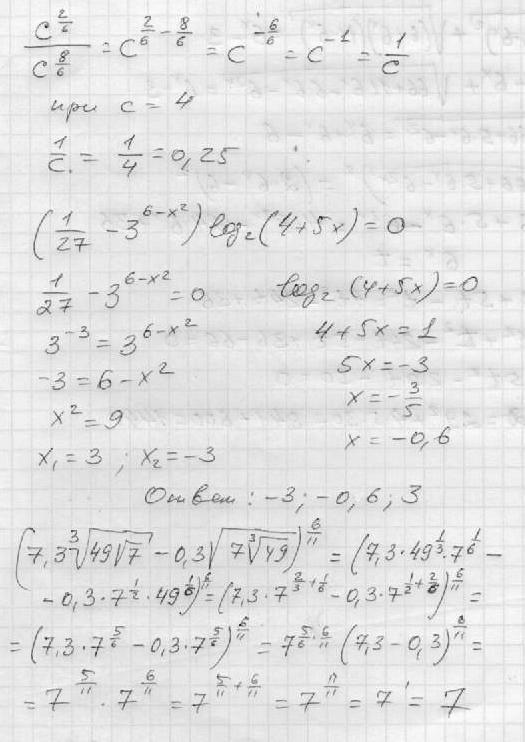 c^(2/6) / c^(8/6) = c^(2/6 - 8/6) = c^(-6/6) = c^(-1) = 1/c
при c = 4
1/c. = 1/4 = 0,25
(1/27 - 3^(6-x²)) log₂(4+5x) = 0
1/27 - 3^(6-x²) = 0    log₂(4+5x) = 0
3^(-3) = 3^(6-x²)    4+5x = 1
-3 = 6 - x²    5x = -3
x² = 9    x = -3/5
x₁ = 3 ; x₂ = -3    x = -0,6
Ответ: -3; -0,6; 3
(7,3 ∛(49√7) - 0,3 √(7∛49))^(6/11) = (7,3·49^(1/3)·7^(1/6) -
- 0,3·7^(1/2)·49^(1/6))^(6/11) = (7,3·7^(2/3+1/6) - 0,3·7^(1/2+2/6))^(6/11) =
= (7,3·7^(5/6) - 0,3·7^(5/6))^(6/11) = 7^(5/6·6/11) (7,3 - 0,3)^(6/11) =
= 7^(5/11) · 7^(6/11) = 7^(5/11+6/11) = 7^(11/11) = 7¹ = 7